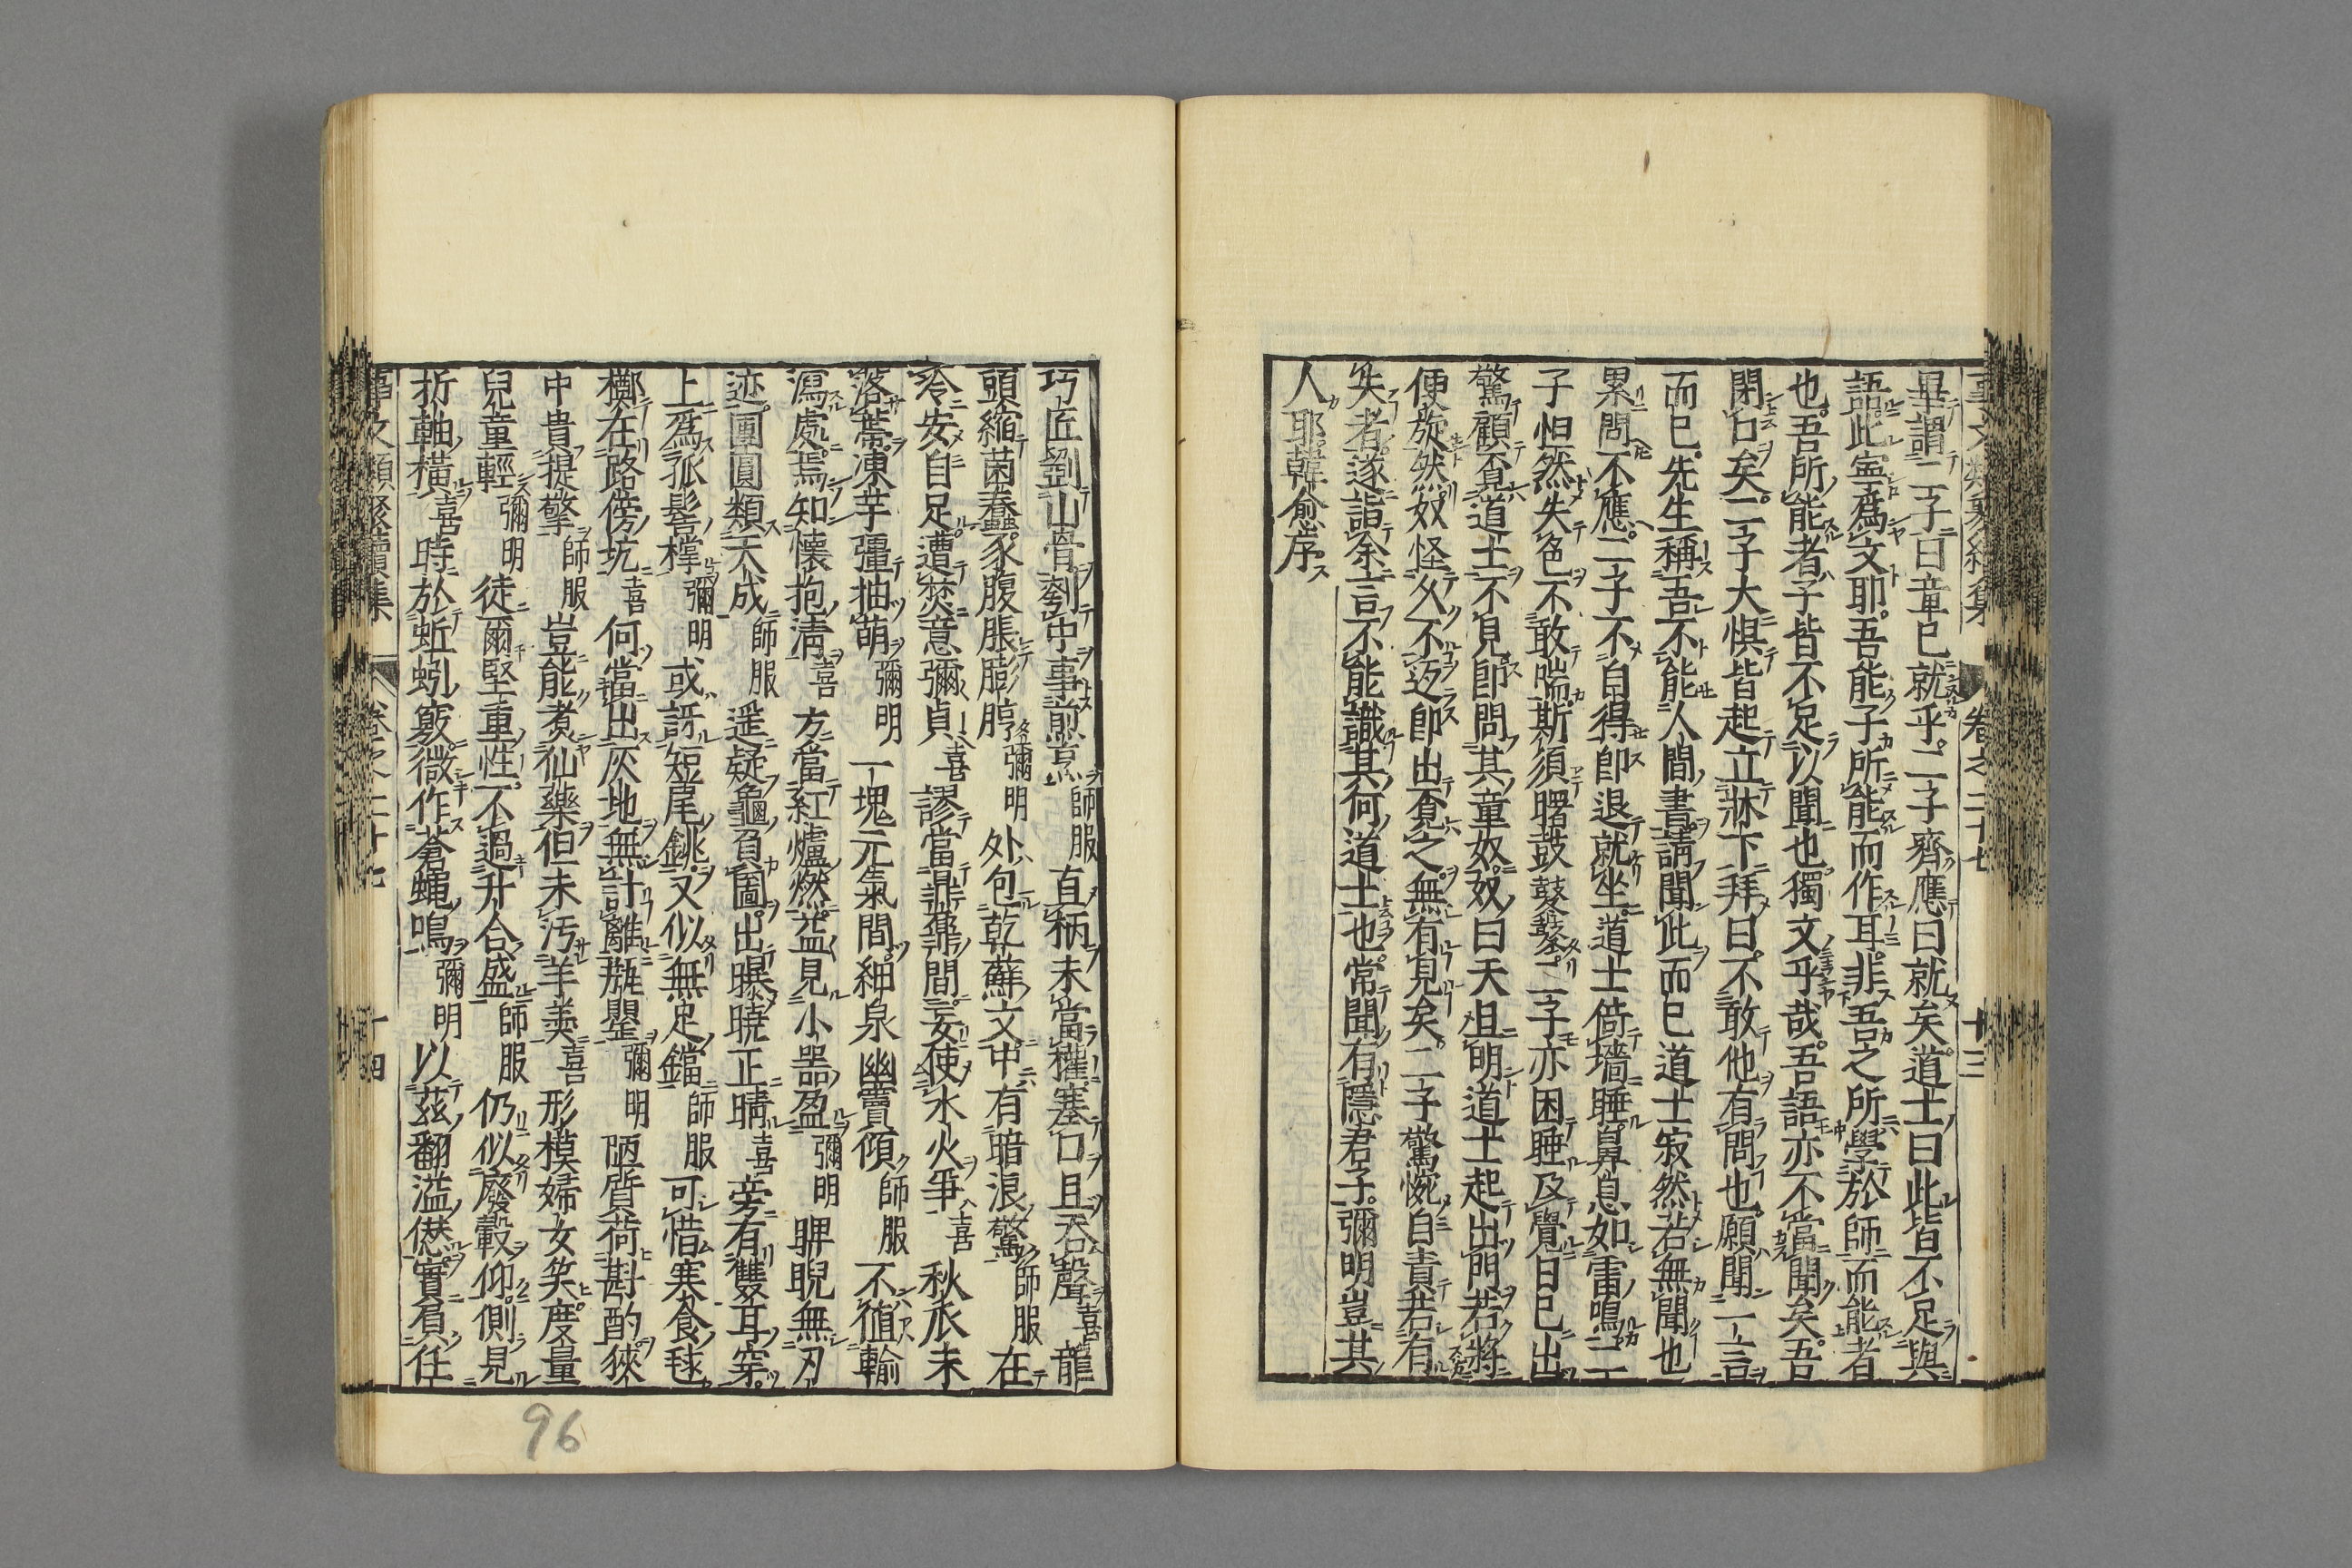 畢謂二子曰章已就乎二子齊應曰就矣道士曰此皆不足與
語此寧爲文耶吾能子所能而作耳非吾之所學於師而能者
也吾所能者子皆不足以聞也獨文乎哉吾語亦不當聞矣吾
閉口矣二子大惧皆起立牀下拜曰不敢他有問也願聞一言
而已先生稱吾不能人間書請聞此而已道士寂然若無聞也
累問不應二子不自得即退就坐道士倚墻睡鼻息如雷鳴二
子怛然失色不敢喘斯須曙鼓鼕鼕二子亦困睡及覺日已出
驚顧覔道士不見即問其童奴奴曰天且明道士起出門若將
便旋然奴怪久不返即出覔之無有見矣二子驚惋自責若有
失者遂詣余言不能識其何道士也常聞有隱君子彌明豈其
人耶韓愈序
巧匠劉山骨刳中事煎烹師服直柄未當權塞口且吞聲喜龍
頭縮菌蠢豕腹脹膨脝彌明外包乾蘇文中有暗浪驚師服在
冷安自足遭焚意彌貞喜謬當鼎鼐間妄使水火爭喜秋衣未
落蔕凍芋彊抽萌彌明一塊元氣間細泉幽竇傾師服不値輸
瀉處焉知懷抱清喜方當紅爐燃益見小器盈彌明睥睨無刃
迹團圓類天成師服遥疑龜負圖出曝曉正晴喜旁有雙耳穿
上爲孤髻撑彌明或訝短尾銚又似無足鐺師服可惜寒食毬
擲在路傍坑喜何當出灰地無計離瓶罌彌明陋質荷斟酌狹
中貴提擎師服豈能煮仙藥但未汚羊羮喜形模婦女笑度量
兒童輕彌明徒爾堅重性不過升合盛師服仍似廢轂仰側見
折軸横喜時於蚯蚓竅微作蒼蝿鳴彌明以茲翻溢愆實負任
事文類聚續集 卷之二十七 十四
96